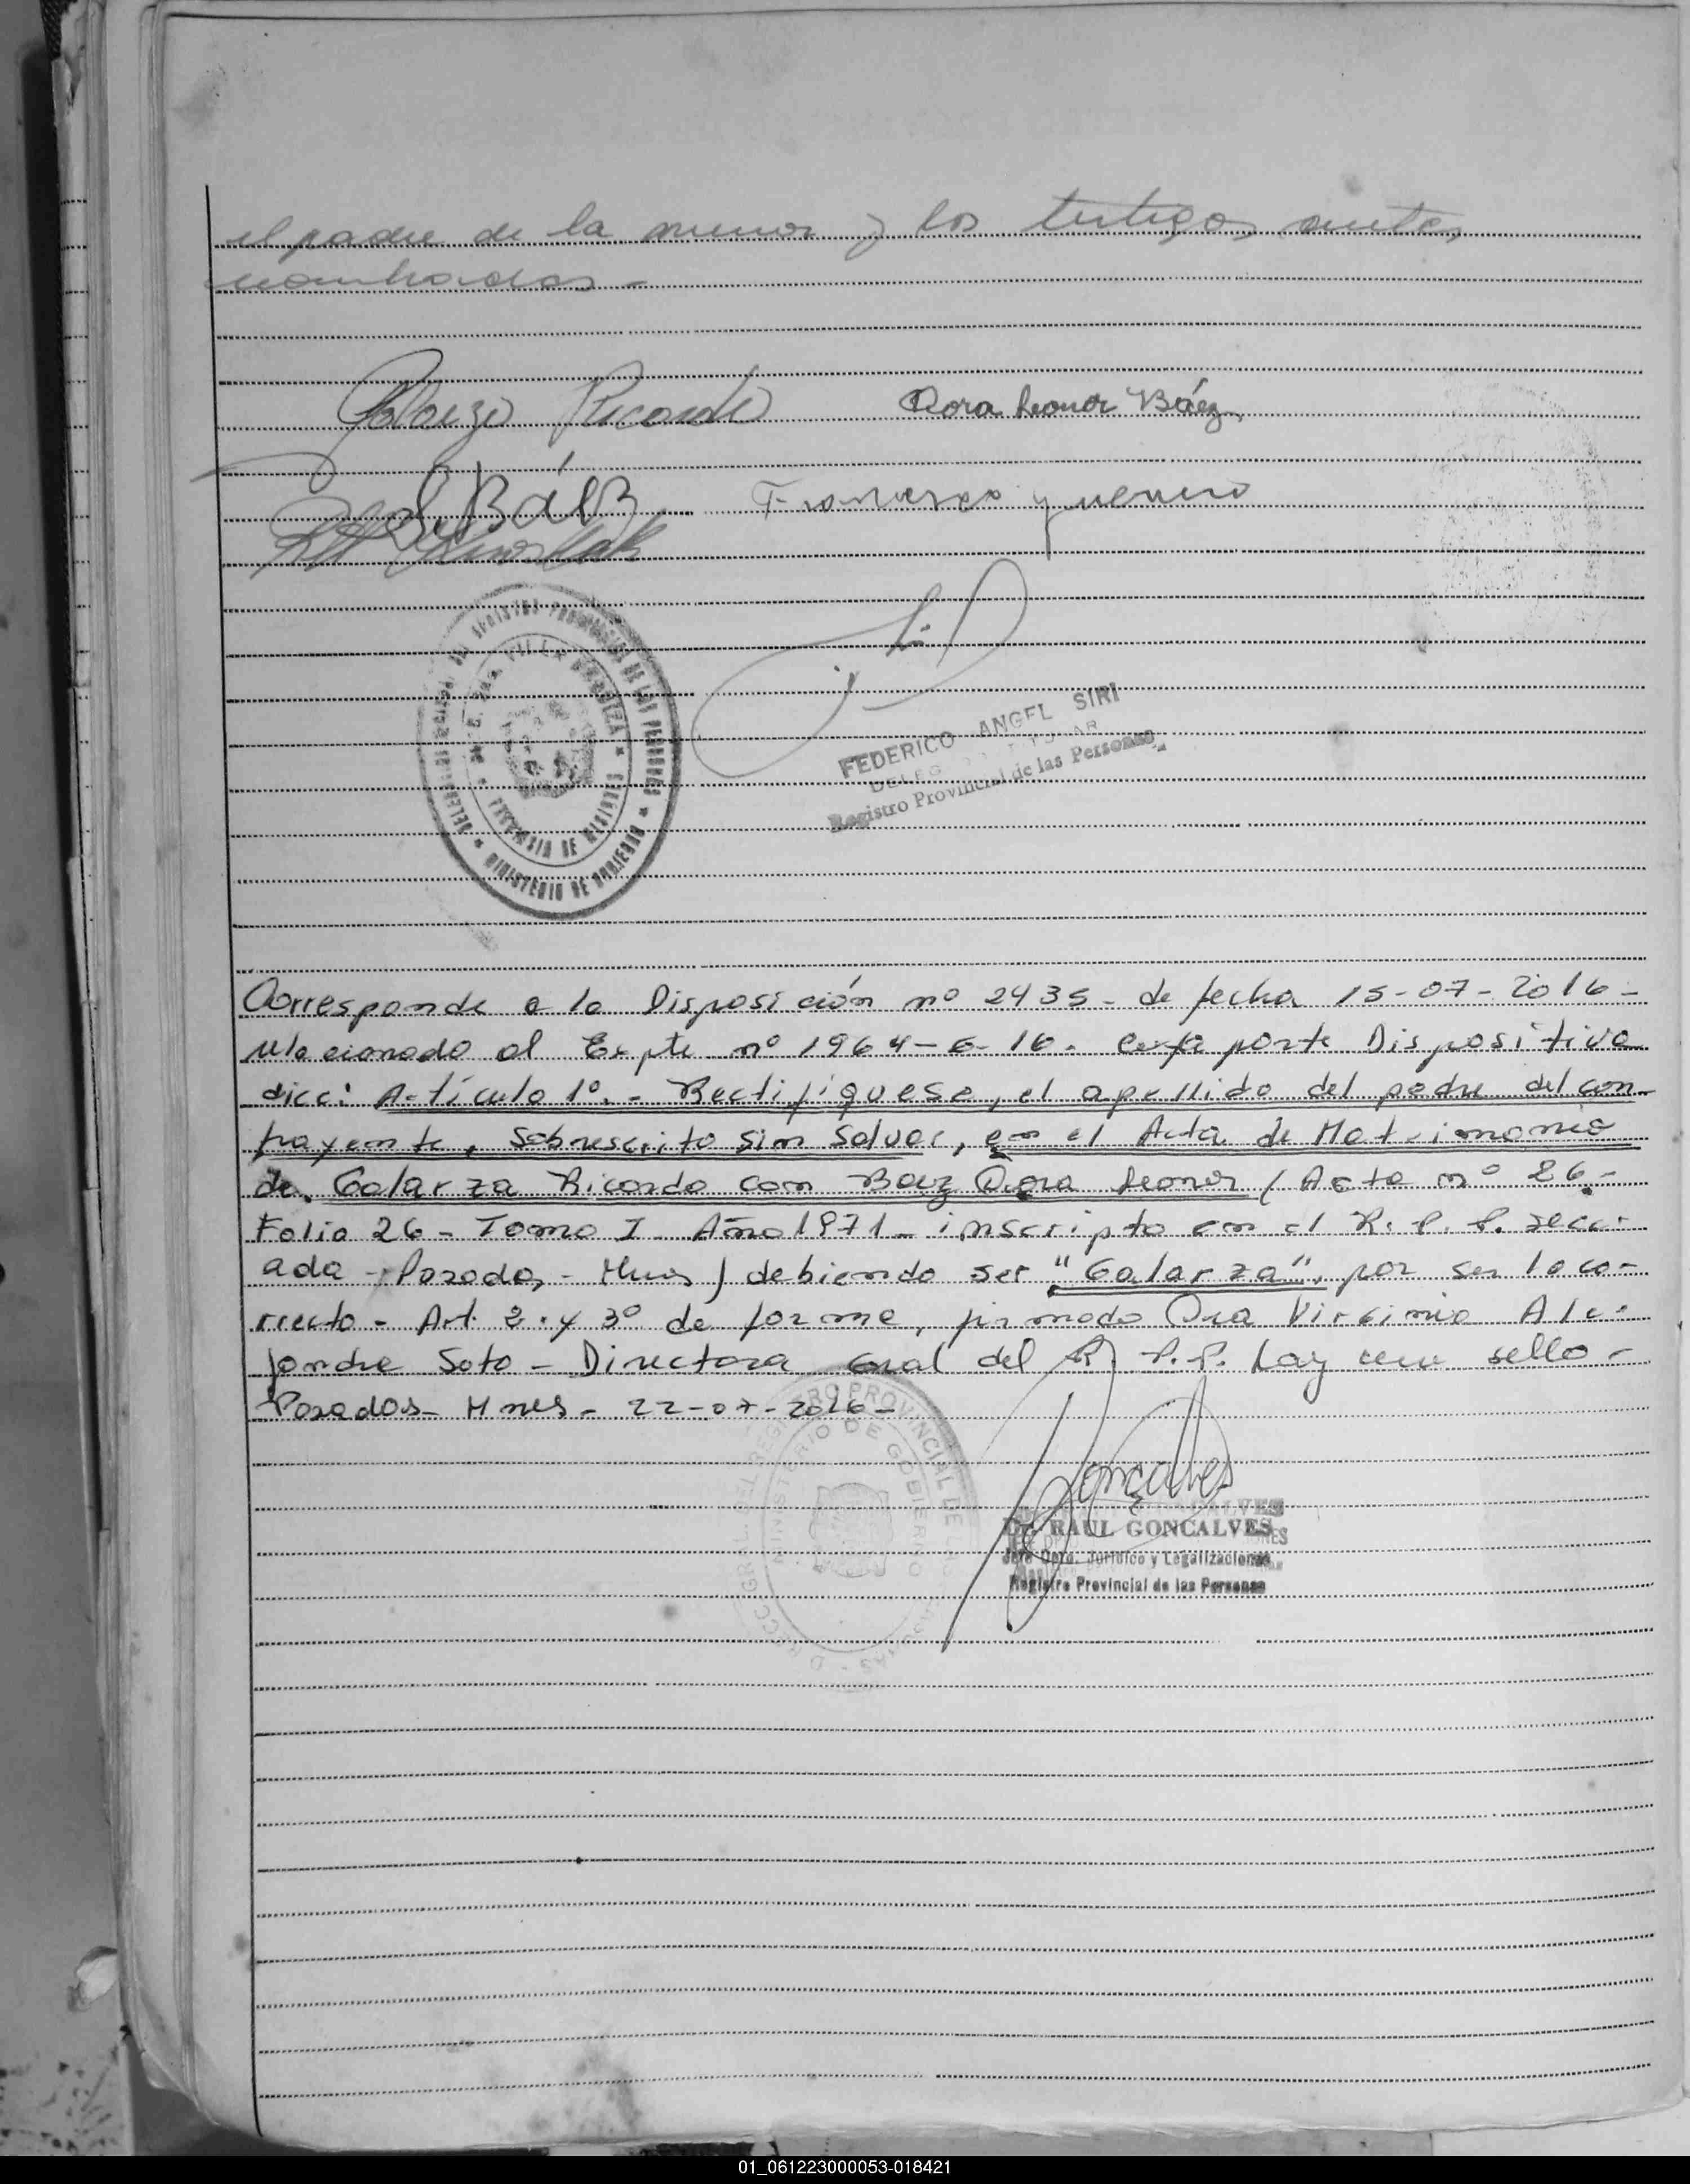 el padre de la menor y los testigos antes
nombrados -
Galarza Ricardo Dora Leonor Báez
Báez Francisco
REGISTRO PROVINCIAL DE LAS PERSONAS * MINISTERIO DE GOBIERNO *
VILLA CABELLO * PROVINCIA DE MISIONES *
FEDERICO ANGEL SIRI
DELEGADO TITULAR
Registro Provincial de las Personas
Corresponde a la Disposición nº 2435 - de fecha 15-07-2016 -
relacionado al Expte nº 1964-G-16. Cuya parte Dispositiva
dice: Artículo 1º. - Rectifiquese, el apellido del padre del con-
trayente, sobrescrito sin salvar, en el Acta de Matrimonio
de, Galarza Ricardo con Baez Dora Leonor (Acta nº 26 -
Folio 26 - Tomo I Año 1971 - inscripto en el R. P. P. secc.
ada - Posadas - Mnes) debiendo ser "Galarza", por ser lo co-
rrecto - Art. 2. y 3º de forma, firmado Dra Virginia Ale-
jandra Soto - Directora Gral del R. P.P. hay un sello -
Posadas - Mnes - 22-07-2016 -
DIRECC. GRAL. DEL REGISTRO PROVINCIAL DE LAS PERSONAS
MINISTERIO DE GOBIERNO
Goncalves
Dr. RAUL GONCALVES
Jefe Dpto. Jurídico y Legalizaciones
Registro Provincial de las Personas
01_061223000053-018421